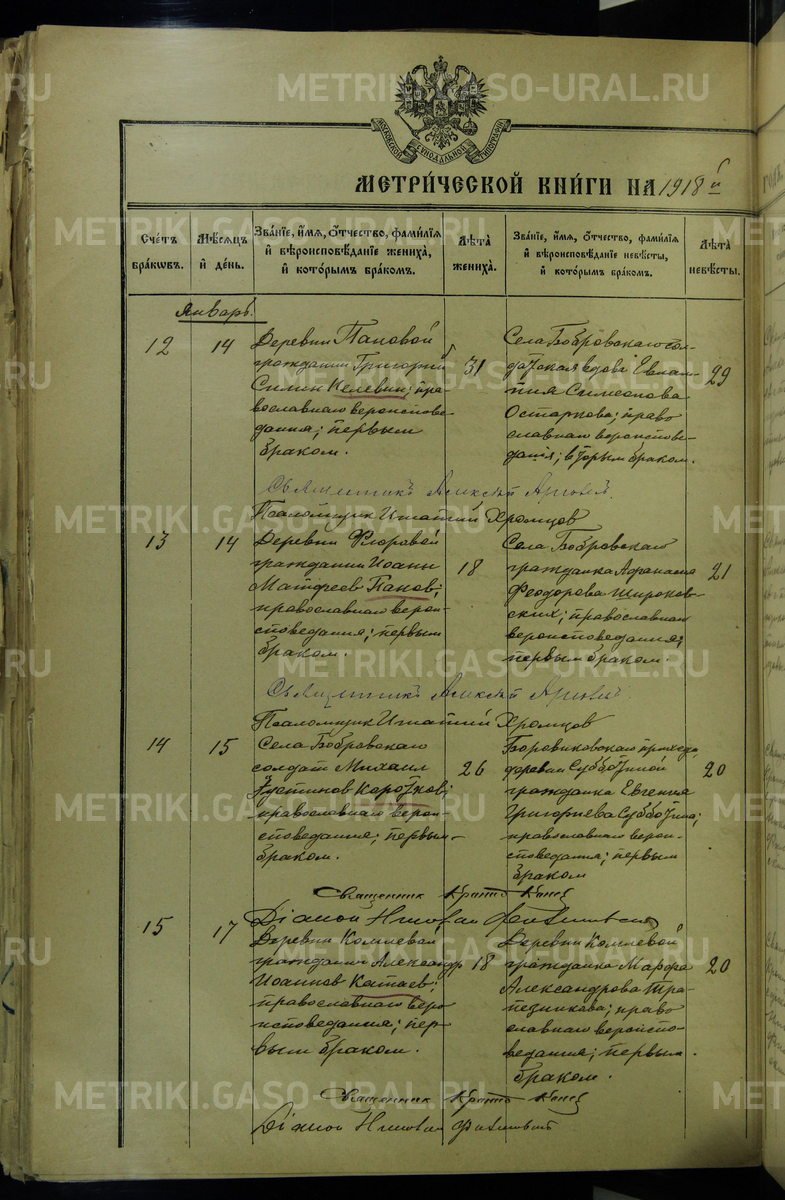 МОСКОВСКОЙ СѴНОДАЛЬНОЙ ТИПОГРАФІИ
МЕТРИ́ЧЕСКОЙ КНИ́ГИ НА 1918 й
Сче́тъ бра́кѡвъ.
Мѣ́сѧцъ и҆ де́нь.
Зва́нїе, и҆́мѧ, ѻ҆́тчество, фами́лїѧ
и҆ вѣроисповѣ́данїе жениха̀,
и҆ кото́рымъ бра́комъ.
Лѣ́та̀ жениха̀.
Зва́нїе, и҆́мѧ, ѻ҆́тчество, фами́лїѧ
и҆ вѣроисповѣ́данїе невѣ́сты,
и҆ кото́рымъ бра́комъ.
Лѣ́та̀ невѣ́сты.
Январь.
12
14
Деревни Пановой
гражданин Григорий
Симин Келевин; пра-
вославнаго вероиспове-
дания; первым
браком.
31
Села Бобровскаго сол-
датская вдова Евлам-
пия Симеонова
Остаркова; право
славнаго вероиспове-
дания; вторым браком.
29
Священникъ Алексѣй
Псаломщик Игнатий Хромцов
13
14
Деревни Флоровой
гражданин Иоанн
Матфеев Панов;
православнаго верои-
споведания; первым
браком.
18
Села Бобровскаго
гражданка Афанасия
Феодорова Широков-
ских; православнаго
вероисповедания;
первым браком.
21
Священникъ Алексѣй
Псаломщик Игнатий Хромцов
14
15
Села Бобровскаго
солдат Михаил
Иустинов Коротков;
православнаго верои-
споведания; первым
браком.
26
Боровиковскаго прихода
деревни Субботиной
гражданка Евгения
Григориева Субботина;
православнаго верои-
споведания; первым
браком
20
Священник
Діакон
15
17
Деревни Комлевой
гражданин Александр
Иоаннов Катаев;
православнаго веро
исповедания; пер-
вым браком.
18
Деревни Комлевой
гражданка Марфа
Александрова Тра-
пезникова; право
славнаго вероиспо-
ведания; первым
браком.
20
Священник
Діакон
METRIKI.GASO-URAL.RU